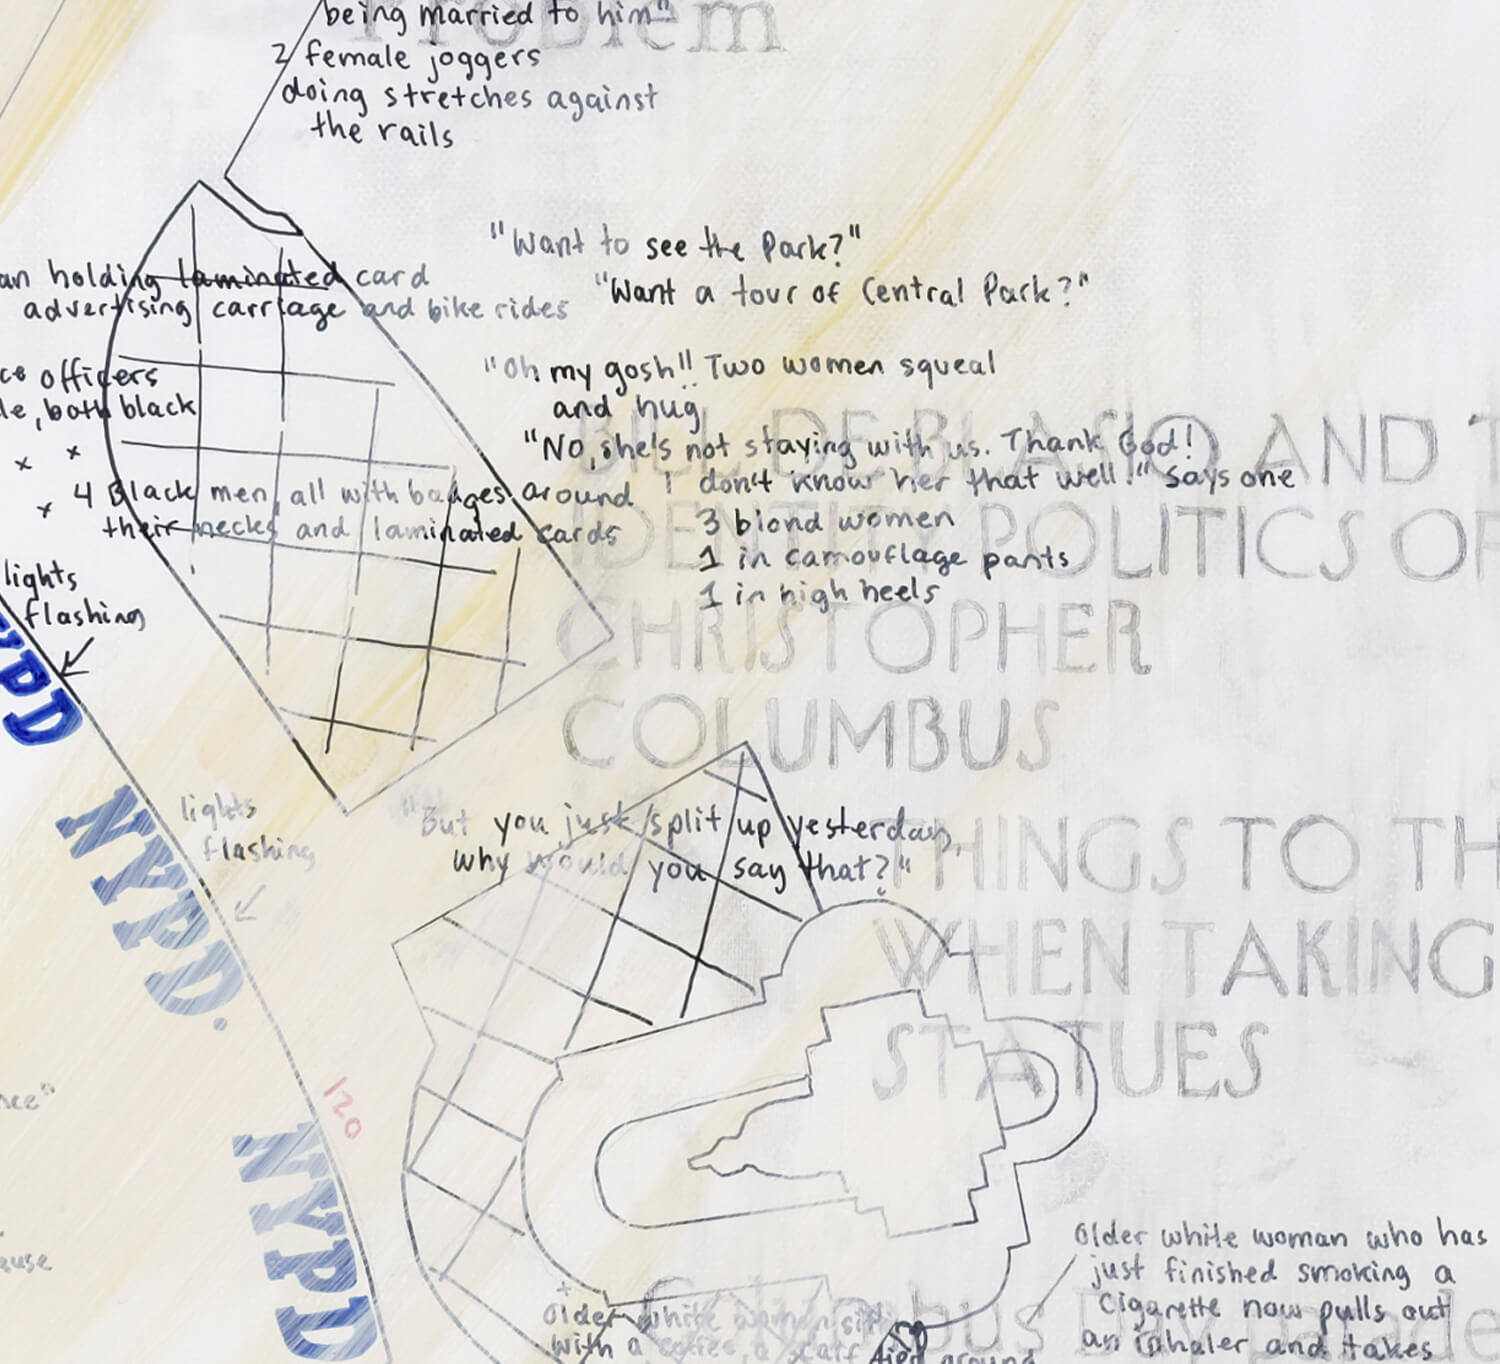 being married to him"
Problem
2 female joggers
doing stretches against
the rails
"Want to see the Park?"
"Want a tour of Central Park?"
an holding laminated card
advertising carriage and bike rides
"Oh my gosh!! Two women squeal
and hug
ce officers
le, both black
"No, she's not staying with us. Thank God!
I don't know her that well!" says one
3 blond women
1 in camouflage pants
1 in high heels
x x
x 4 Black men, all with badges around
their necks and laminated cards
BILL DE BLASIO AND T
IDENTITY POLITICS OF
CHRISTOPHER
COLUMBUS
lights
flashing
NYPD
lights
flashing
NYPD.
"But you just split up yesterday,
why would you say that?"
THINGS TO TH
WHEN TAKING
STATUES
nce"
120
NYPD
ause
Older white woman who has
just finished smoking a
cigarette now pulls out
an inhaler and takes
Columbus Day
older white woman sits
with a coffee, a scarf
tied around